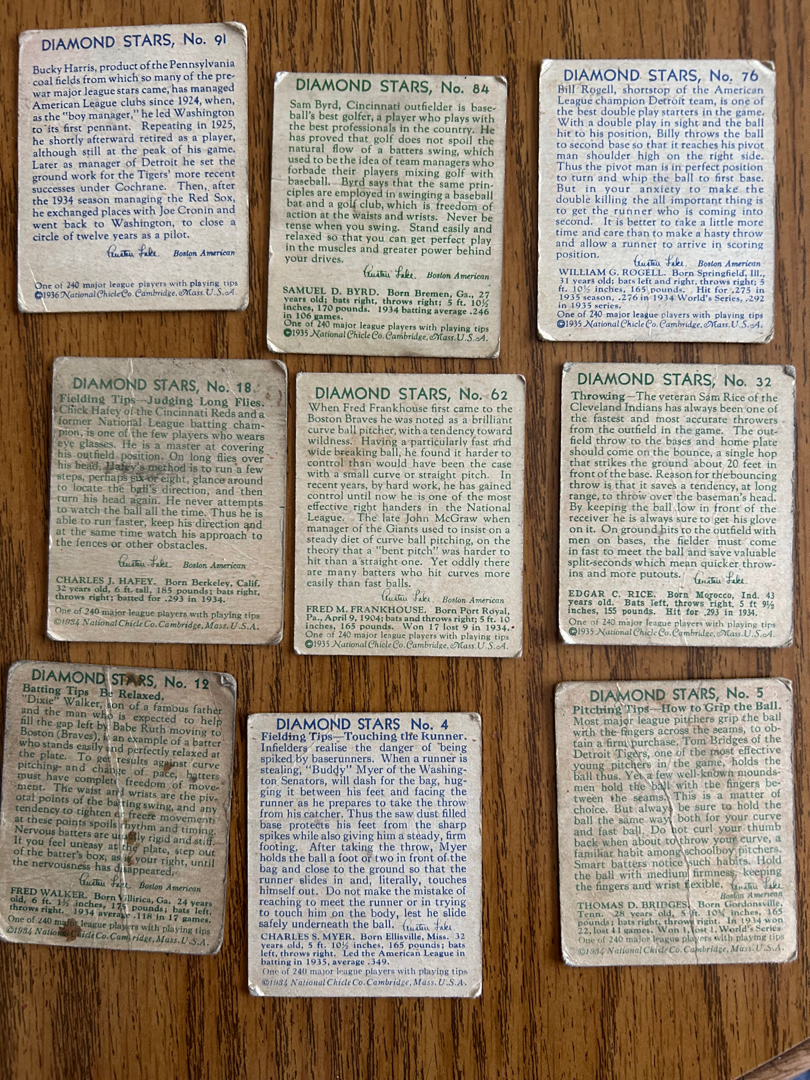 DIAMOND STARS, No. 91
Bucky Harris, product of the Pennsylvania
coal fields from which so many of the pre-
war major league stars came, has managed
American League clubs since 1924, when,
as the "boy manager," he led Washington
to its first pennant. Repeating in 1925,
he shortly afterward retired as a player,
although still at the peak of his game.
Later as manager of Detroit he set the
ground work for the Tigers' more recent
successes under Cochrane. Then, after
the 1934 season managing the Red Sox,
he exchanged places with Joe Cronin and
went back to Washington, to close a
circle of twelve years as a pilot.
Austen Lake Boston American
One of 240 major league players with playing tips
©1936 National Chicle Co. Cambridge, Mass. U.S.A.
DIAMOND STARS, No. 84
Sam Byrd, Cincinnati outfielder is base-
ball's best golfer, a player who plays with
the best professionals in the country. He
has proved that golf does not spoil the
natural flow of a batters swing, which
used to be the idea of team managers who
forbade their players mixing golf with
baseball. Byrd says that the same prin-
ciples are employed in swinging a baseball
bat and a golf club, which is freedom of
action at the waists and wrists. Never be
tense when you swing. Stand easily and
relaxed so that you can get perfect play
in the muscles and greater power behind
your drives.
Austen Lake. Boston American
SAMUEL D. BYRD. Born Bremen, Ga., 27
years old; bats right, throws right; 5 ft. 10½
inches, 170 pounds. 1934 batting average .246
in 106 games.
One of 240 major league players with playing tips
©1935 National Chicle Co. Cambridge, Mass. U.S.A.
DIAMOND STARS, No. 76
Bill Rogell, shortstop of the American
League champion Detroit team, is one of
the best double play starters in the game.
With a double play in sight and the ball
hit to his position, Billy throws the ball
to second base so that it reaches his pivot
man shoulder high on the right side.
Thus the pivot man is in perfect position
to turn and whip the ball to first base.
But in your anxiety to make the
double killing the all important thing is
to get the runner who is coming into
second. It is better to take a little more
time and care than to make a hasty throw
and allow a runner to arrive in scoring
position.
Austen Lake. Boston American
WILLIAM G. ROGELL. Born Springfield, Ill.,
31 years old; bats left and right, throws right; 5
ft. 10½ inches, 165 pounds. Hit for .275 in
1935 season, .276 in 1934 World's Series, .292
in 1935 series.
One of 240 major league players with playing tips
©1935 National Chicle Co. Cambridge, Mass. U.S.A.
DIAMOND STARS, No. 18
Fielding Tips—Judging Long Flies.
Chick Hafey of the Cincinnati Reds and a
former National League batting cham-
pion, is one of the few players who wears
eye glasses. He is a master at covering
his outfield position. On long flies over
his head, Hafey's method is to run a few
steps, perhaps six or eight, glance around
to locate the ball's direction, and then
turn his head again. He never attempts
to watch the ball all the time. Thus he is
able to run faster, keep his direction and
at the same time watch his approach to
the fences or other obstacles.
Austen Lake Boston American
CHARLES J. HAFEY. Born Berkeley, Calif.
32 years old, 6 ft. tall, 185 pounds; bats right,
throws right; batted for .293 in 1934.
One of 240 major league players with playing tips
©1934 National Chicle Co. Cambridge, Mass. U.S.A.
DIAMOND STARS, No. 62
When Fred Frankhouse first came to the
Boston Braves he was noted as a brilliant
curve ball pitcher, with a tendency toward
wildness. Having a particularly fast and
wide breaking ball, he found it harder to
control than would have been the case
with a small curve or straight pitch. In
recent years, by hard work, he has gained
control until now he is one of the most
effective right handers in the National
League. The late John McGraw when
manager of the Giants used to insist on a
steady diet of curve ball pitching, on
the theory that a "bent pitch" was harder to
hit than a straight one. Yet oddly there
are many batters who hit curves more
easily than fast balls.
Austen Lake Boston American
FRED M. FRANKHOUSE. Born Port Royal,
Pa., April 9, 1904; bats and throws right; 5 ft. 10
inches, 165 pounds. Won 17 lost 9 in 1934.
One of 240 major league players with playing tips
©1935 National Chicle Co. Cambridge, Mass. U.S.A.
DIAMOND STARS, No. 32
Throwing—The veteran Sam Rice of the
Cleveland Indians has always been one of
the fastest and most accurate throwers
from the outfield in the game. The out-
field throw to the bases and home plate
should come on the bounce, a single hop
that strikes the ground about 20 feet in
front of the base. Reason for the bouncing
throw is that it saves a tendency, at long
range, to throw over the baseman's head.
By keeping the ball low in front of the
receiver he is always sure to get his glove
on it. On ground hits to the outfield with
men on bases, the fielder must come
in fast to meet the ball and save valuable
split-seconds which mean quicker throw-
ins and more putouts. Austen Lake
EDGAR C. RICE. Born Morocco, Ind. 43
years old. Bats left, throws right, 5 ft 9½
inches, 155 pounds. Hit for .293 in 1934.
One of 240 major league players with playing tips
©1935 National Chicle Co. Cambridge, Mass. U.S.A.
DIAMOND STARS, No. 12
Batting Tips Be Relaxed.
"Dixie" Walker, son of a famous father
and the man who is expected to help
fill the gap left by Babe Ruth moving to
Boston (Braves), is an example of a batter
who stands easily and perfectly relaxed at
the plate. To get results against curve
pitching and change of pace, batters
must have complete freedom of move-
ment. The waist and wrists are the piv-
otal points of the batting swing, and any
tendency to tighten or freeze movements
at these points spoils rhythm and timing.
Nervous batters are usually rigid and stiff.
If you feel uneasy at the plate, step out
of the batter's box, as is your right, until
the nervousness has disappeared.
Austen Lake Boston American
FRED WALKER. Born Villirica, Ga. 24 years
old, 6 ft. 1½ inches, 175 pounds; bats left,
throws right. 1934 average .118 in 17 games.
One of 240 major league players with playing tips
©1934 National Chicle Co. Cambridge, Mass. U.S.A.
DIAMOND STARS No. 4
Fielding Tips—Touching the Runner.
Infielders realise the danger of being
spiked by baserunners. When a runner is
stealing, "Buddy" Myer of the Washing-
ton Senators, will dash for the bag, hug-
ging it between his feet and facing the
runner as he prepares to take the throw
from his catcher. Thus the saw dust filled
base protects his feet from the sharp
spikes while also giving him a steady, firm
footing. After taking the throw, Myer
holds the ball a foot or two in front of the
bag and close to the ground so that the
runner slides in and, literally, touches
himself out. Do not make the mistake of
reaching to meet the runner or in trying
to touch him on the body, lest he slide
safely underneath the ball. Austen Lake
CHARLES S. MYER. Born Ellisville, Miss. 32
years old, 5 ft. 10½ inches, 165 pounds; bats
left, throws right. Led the American League in
batting in 1935, average .349.
One of 240 major league players with playing tips
©1934 National Chicle Co. Cambridge, Mass. U.S.A.
DIAMOND STARS, No. 5
Pitching Tips—How to Grip the Ball.
Most major league pitchers grip the ball
with the fingers across the seams, to ob-
tain a firm purchase. Tom Bridges of the
Detroit Tigers, one of the most effective
young pitchers in the game, holds the
ball thus. Yet a few well-known mounds-
men hold the ball with the fingers be-
tween the seams. This is a matter of
choice. But always be sure to hold the
ball the same way both for your curve
and fast ball. Do not curl your thumb
back when about to throw your curve, a
familiar habit among schoolboy pitchers.
Smart batters notice such habits. Hold
the ball with medium firmness, keeping
the fingers and wrist flexible. Austen Lake
Boston American
THOMAS D. BRIDGES. Born Gordonsville,
Tenn. 28 years old, 5 ft. 10½ inches, 165
pounds; bats right, throws right. In 1934 won
22, lost 11 games. Won 1, lost 1, World's Series
One of 240 major league players with playing tips
©1934 National Chicle Co. Cambridge, Mass. U.S.A.